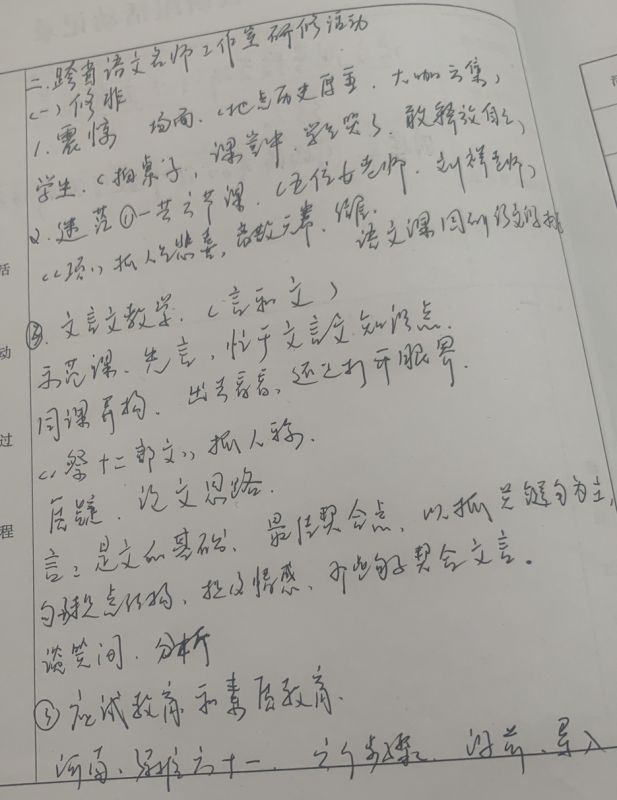 二、跨省语文名师工作室研修活动
(一) 修非
1. 震惊 场面。(地点历史厚重、大咖云集)
学生。(拍桌子, 课堂中, 学生哭了, 敢释放自己)
2. 迷茫 ①一共六节课。(五位女老师, 刘祥老师)
《项》, 抓人生悲喜, 语文课
②. 文言文教学。(言和文)
示范课、先言, 忙于文言文知识点。
同课异构。出去看看, 还是打开眼界。
《祭十二郎文》, 抓人称。
质疑, 论文思路。
言: 是文的基础, 最佳契合点, 以抓关键句为主,
情感, 契合文言。
谈笑间, 分析
③ 应试教育和素质教育。
河南、六十一、六个步骤、导入
活
动
过
程